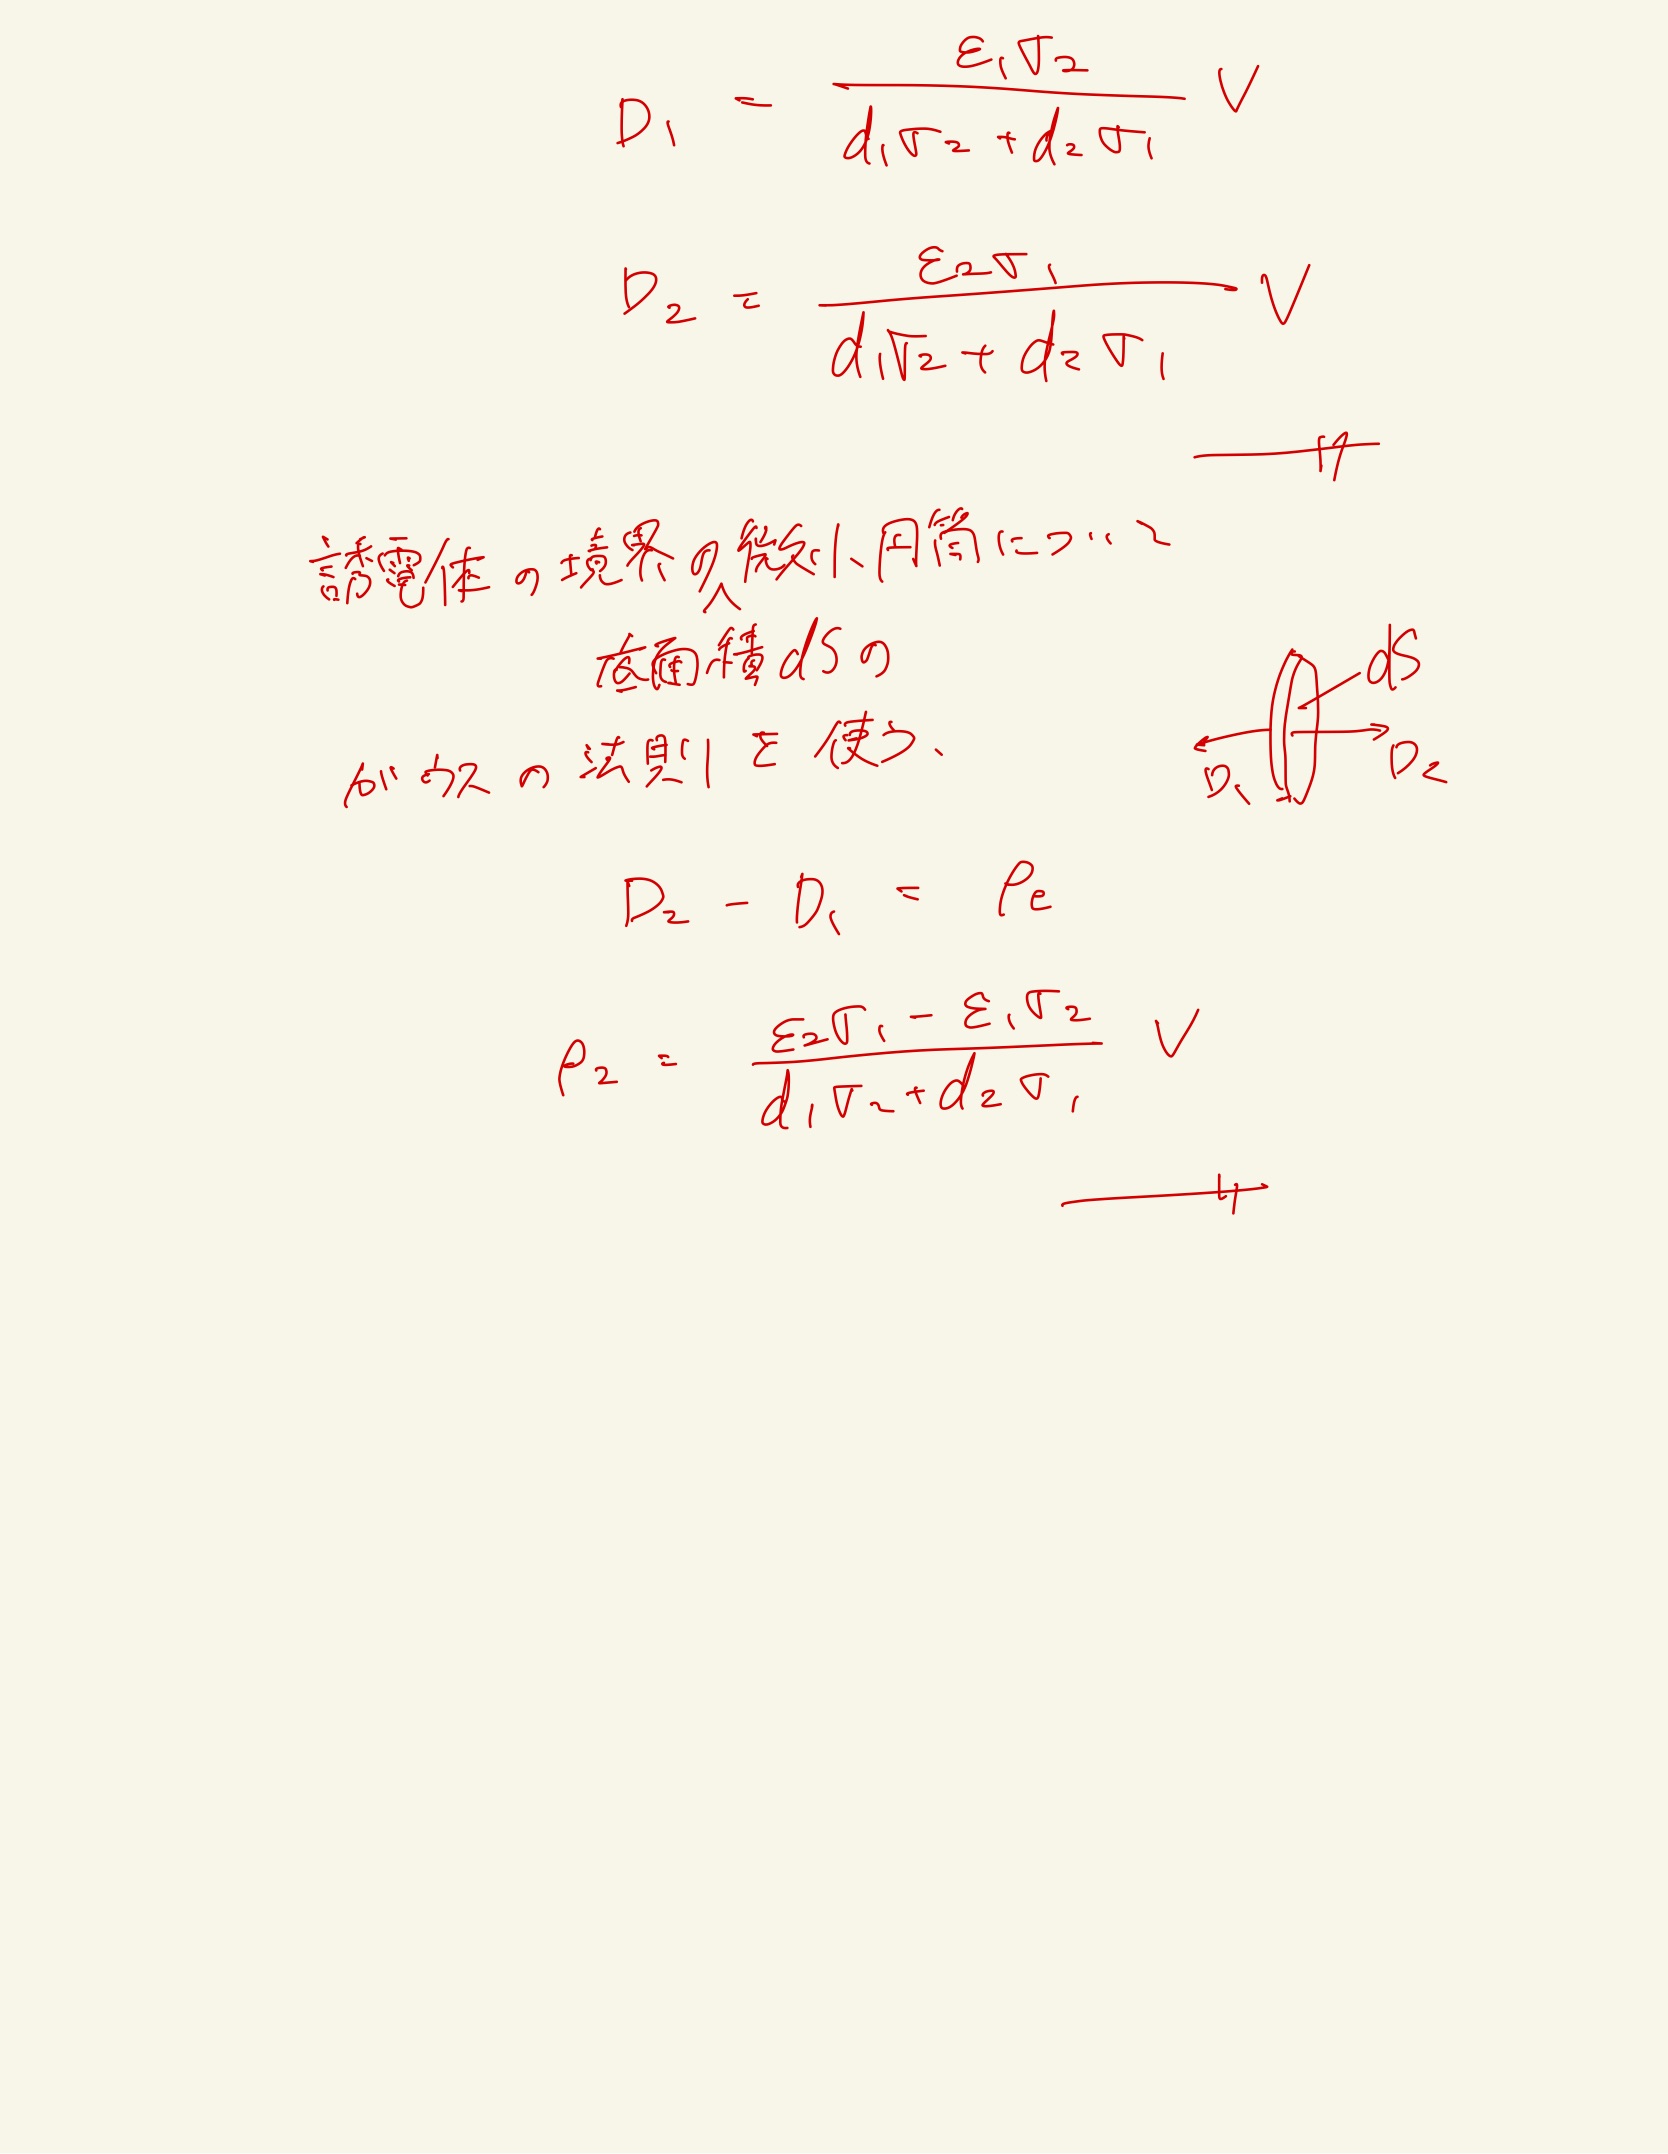 D₁ = ε₁σ₂ / (d₁σ₂ + d₂σ₁) V
D₂ = ε₂σ₁ / (d₁σ₂ + d₂σ₁) V
誘電体の境界の微小円筒について
底面積dSの
ガウスの法則を使う、
dS
D₁
D₂
D₂ - D₁ = ρe
ρ₂ = (ε₂σ₁ - ε₁σ₂) / (d₁σ₂ + d₂σ₁) V